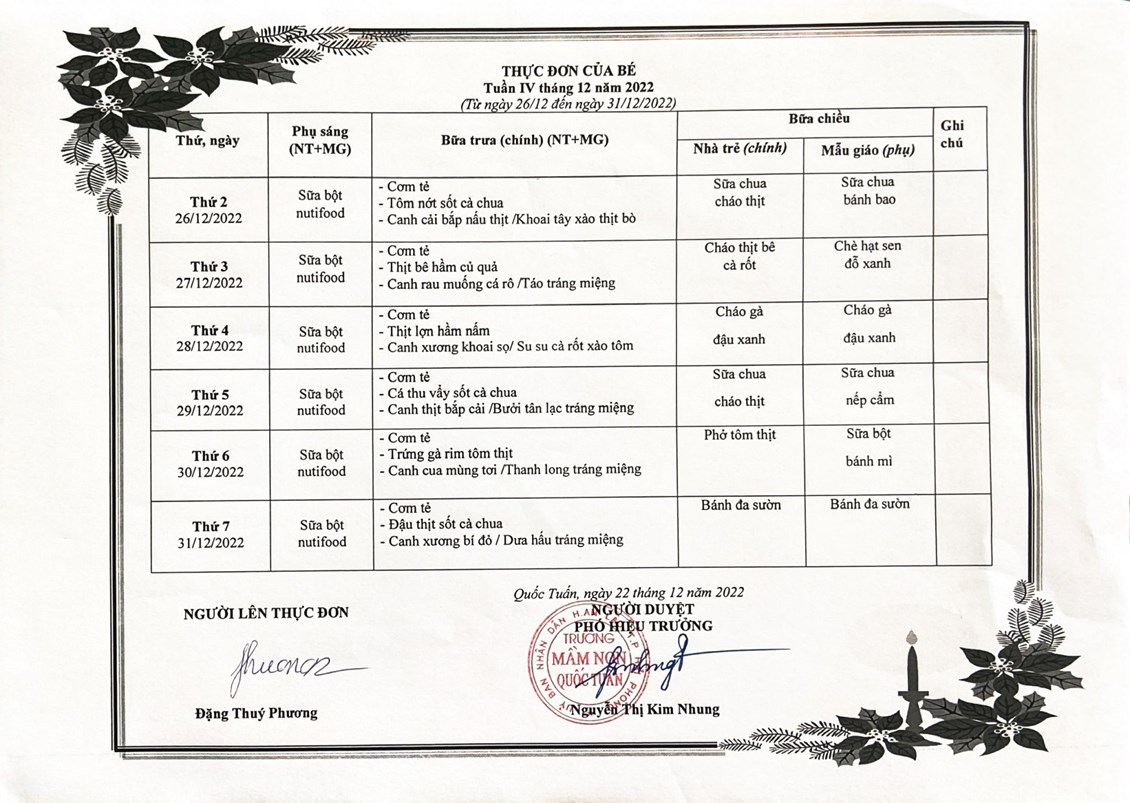 THỰC ĐƠN CỦA BÉ
Tuần IV tháng 12 năm 2022
(Từ ngày 26/12 đến ngày 31/12/2022)
Thứ, ngày
Phụ sáng
(NT+MG)
Bữa trưa (chính) (NT+MG)
Bữa chiều
Nhà trẻ (chính)
Mẫu giáo (phụ)
Ghi
chú
Thứ 2
26/12/2022
Sữa bột
nutifood
- Cơm tẻ
- Tôm nớt sốt cà chua
- Canh cải bắp nấu thịt /Khoai tây xào thịt bò
Sữa chua
cháo thịt
Sữa chua
bánh bao
Thứ 3
27/12/2022
Sữa bột
nutifood
- Cơm tẻ
- Thịt bê hầm củ quả
- Canh rau muống cá rô /Táo tráng miệng
Cháo thịt bê
cà rốt
Chè hạt sen
đỗ xanh
Thứ 4
28/12/2022
Sữa bột
nutifood
- Cơm tẻ
- Thịt lợn hầm nấm
- Canh xương khoai sọ/ Su su cà rốt xào tôm
Cháo gà
đậu xanh
Cháo gà
đậu xanh
Thứ 5
29/12/2022
Sữa bột
nutifood
- Cơm tẻ
- Cá thu vẩy sốt cà chua
- Canh thịt bắp cải /Bưởi tân lạc tráng miệng
Sữa chua
cháo thịt
Sữa chua
nếp cẩm
Thứ 6
30/12/2022
Sữa bột
nutifood
- Cơm tẻ
- Trứng gà rim tôm thịt
- Canh cua mùng tơi /Thanh long tráng miệng
Phở tôm thịt
Sữa bột
bánh mì
Thứ 7
31/12/2022
Sữa bột
nutifood
- Cơm tẻ
- Đậu thịt sốt cà chua
- Canh xương bí đỏ / Dưa hấu tráng miệng
Bánh đa sườn
Bánh đa sườn
Quốc Tuấn, ngày 22 tháng 12 năm 2022
NGƯỜI LÊN THỰC ĐƠN
NGƯỜI DUYỆT
PHÓ HIỆU TRƯỞNG
TRƯỜNG
MẦM NON
QUỐC TUẤN
Đặng Thuý Phương
Nguyễn Thị Kim Nhung